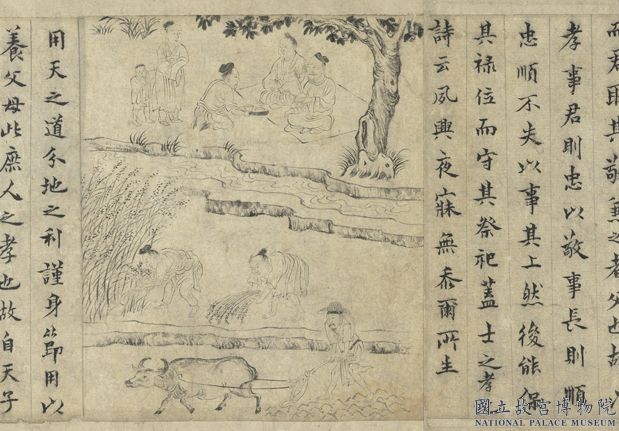 而君取其敬兼之者父也故以
孝事君則忠以敬事長則順
忠順不失以事其上然後能保
其祿位而守其祭祀蓋士之孝
詩云夙興夜寐無忝爾所生
用天之道分地之利謹身節用以
養父母此庶人之孝也故自天子
國立故宮博物院
NATIONAL PALACE MUSEUM